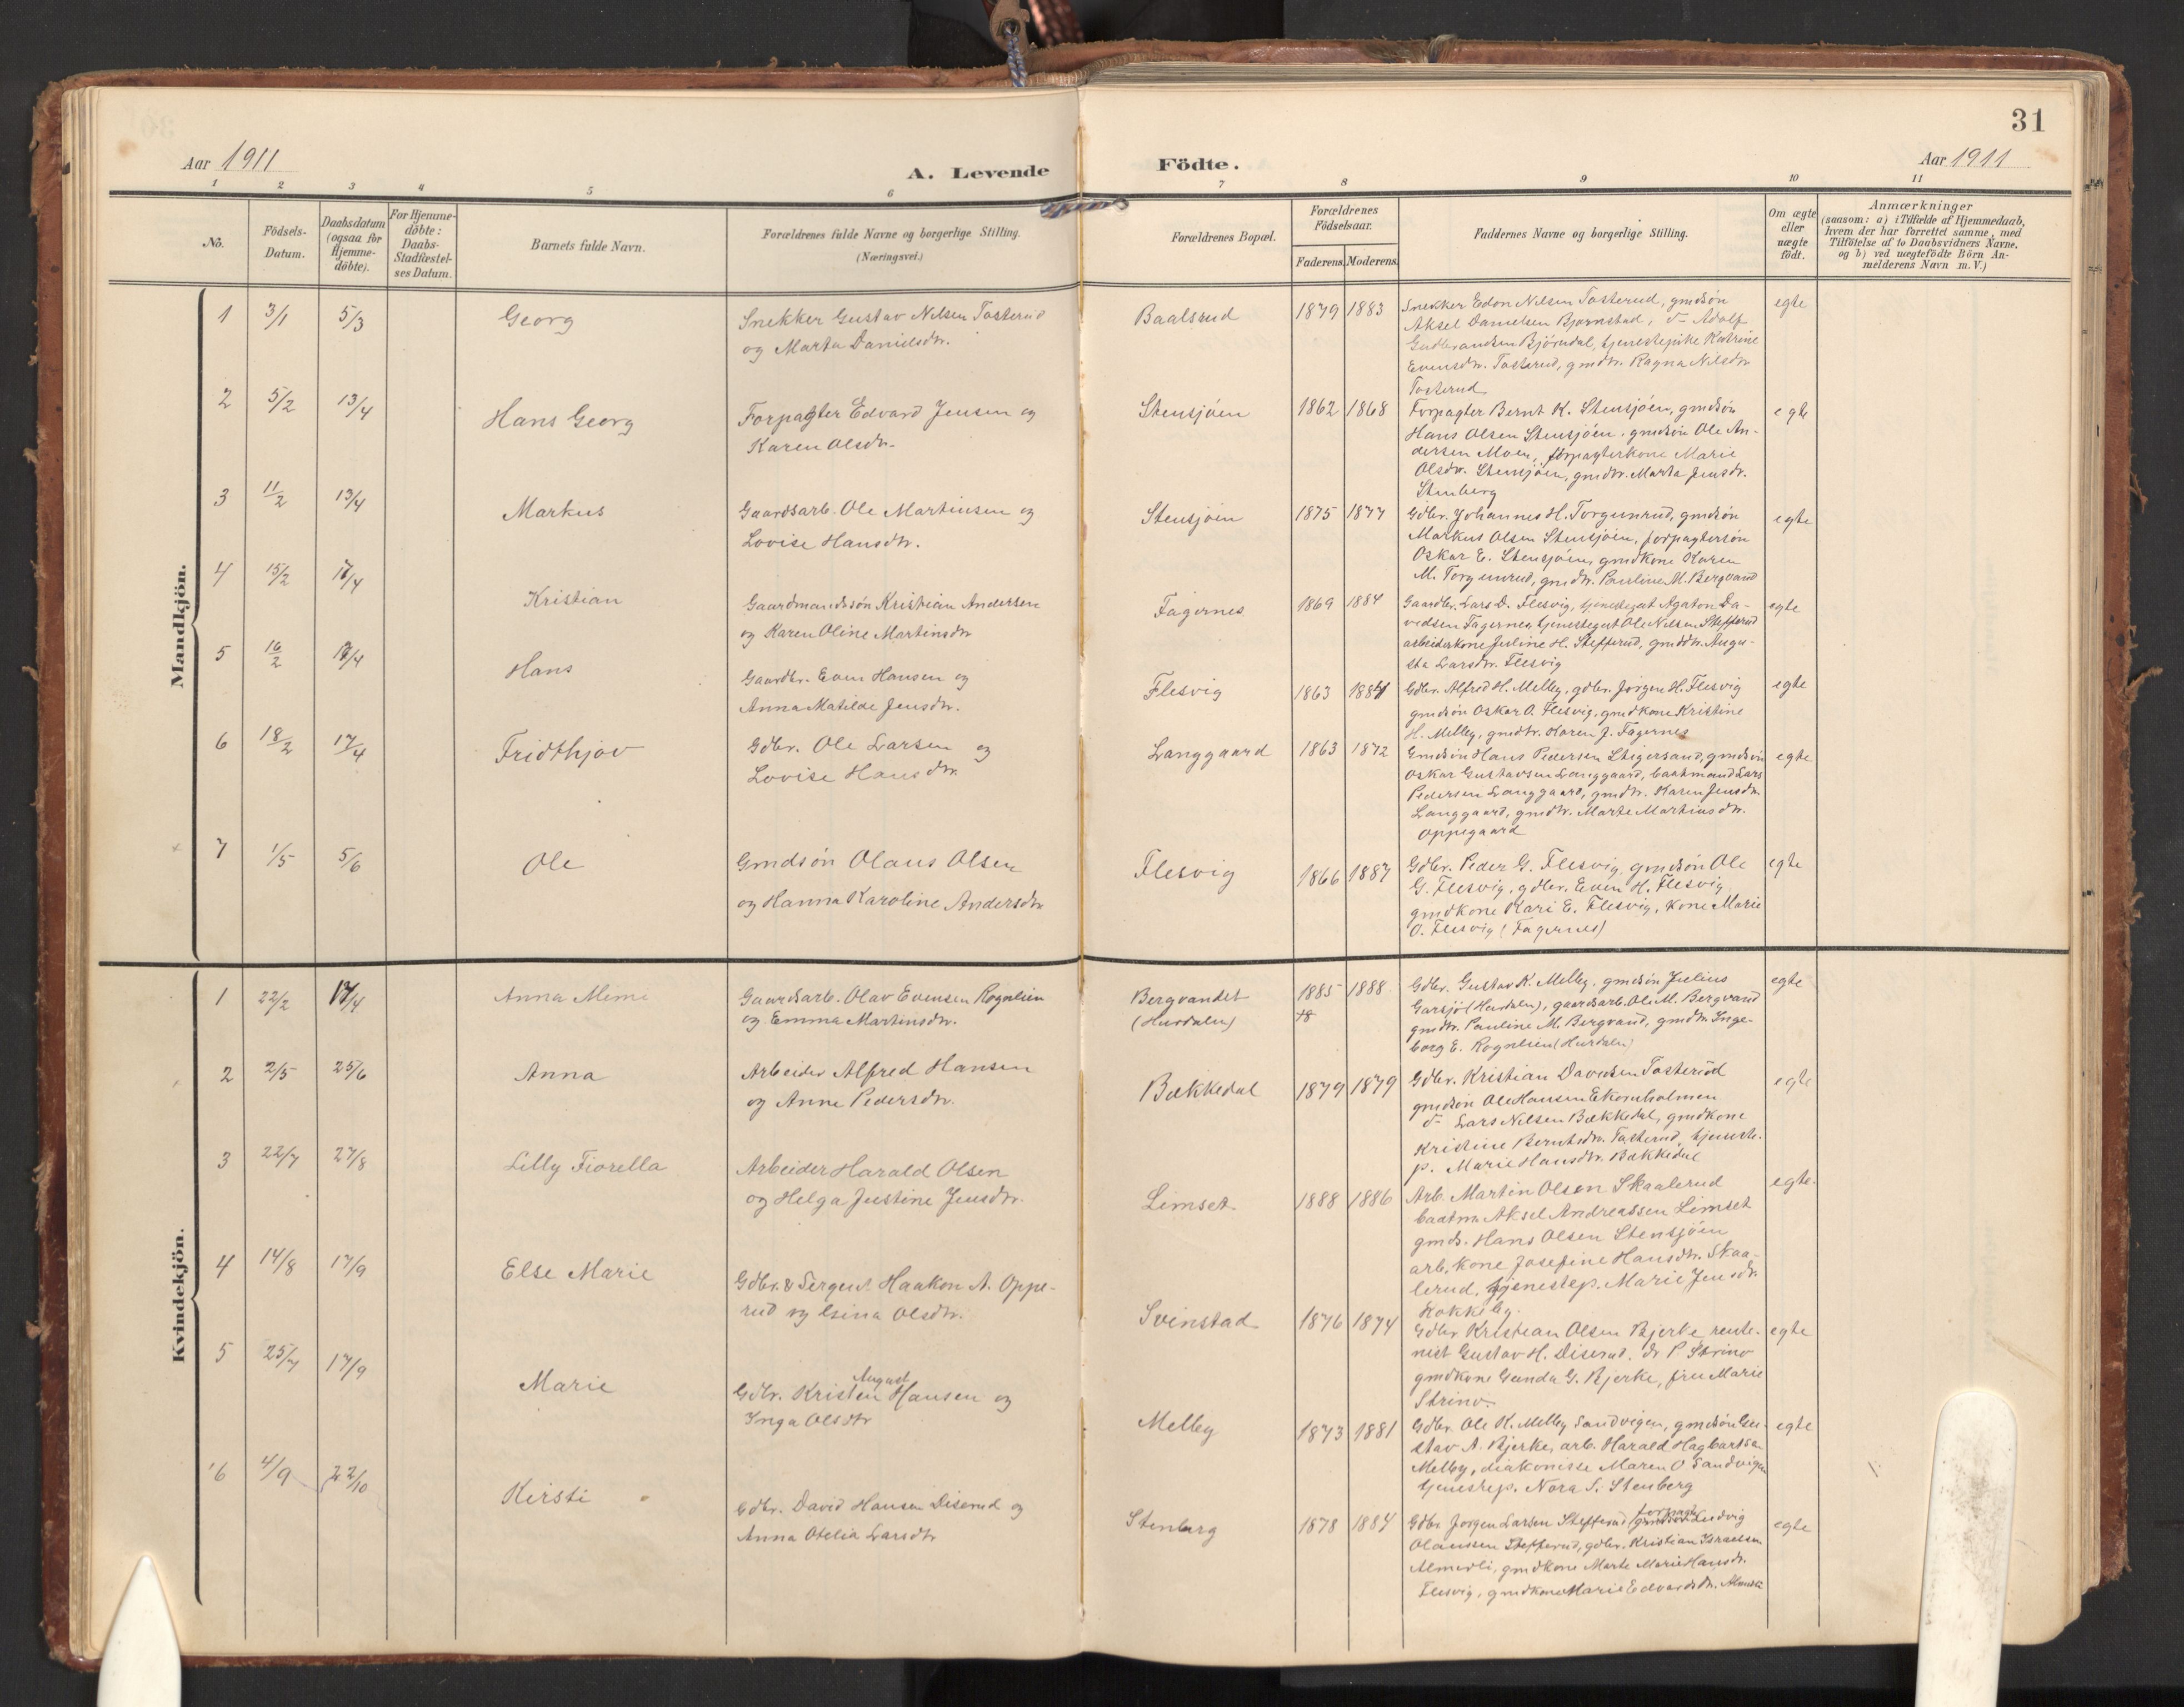 31
Aar 1911
A. Levende
Födte.
Aar 1911
1 2 3 4 5 6 7 8 9 10 11
No.
Födsels-
Datum.
Daabsdatum
(ogsaa for
Hjemme-
döbte).
For Hjemme-
döbte:
Daabs-
Stadfæstel-
ses Datum.
Barnets fulde Navn.
Forældrenes fulde Navne og borgerlige Stilling.
(Næringsvei.)
Forældrenes Bopæl.
Forældrenes
Födselsaar.
Faderens. Moderens.
Faddernes Navne og borgerlige Stilling.
Om ægte
eller
uægte
födt.
Anmærkninger
(saasom: a) i Tilfælde af Hjemmedaab,
hvem der har forrettet samme, med
Tilföielse af to Daabsvidners Navne,
og b) ved uægtefödte Börn An-
melderens Navn m. V.)
Mandkjön.
1 3/1 5/3 Georg
Snekker Gustav Nilsen Tosterud
og Marta Danielsdtr.
Baalsrud 1879 1883
Snekker Edon Nilsen Tosterud, gmdsön
Aksel Danielsen Bjørnstad, d- Adolf
Gudbrandsen Bjørndal, tjenestepike Katrine
Evensdtr. Tosterud, gmdtr. Ragna Nilsdtr
Tosterud
egte
2 5/2 13/4 Hans Georg
Forpagter Edvard Jensen og
Karen Olsdtr.
Stensjöen 1862 1868
Forpagter Bernt K. Stensjöen, gmdsön
Hans Olsen Stensjöen, gmdsön Ole An-
dersen Moen, forpagterkone Marie
Olsdtr. Stensjöen, gmdtr. Marta Jensdtr.
Stenberg
egte
3 11/2 13/4 Markus
Gaardsarb. Ole Martinsen og
Lovise Hansdtr.
Stensjöen 1875 1877
Gdbr. Johannes H. Torgunrud, gmdsön
Markus Olsen Stensjöen, forpagtersön
Oskar E. Stensjöen, gmdkone Karen
M. Torgunrud, gmdtr. Pauline M. Bergvand
egte
4 15/2 17/4 Kristian
Gaardmandssön Kristian Andersen
og Karen Oline Martinsdtr
Fagernes 1869 1884
Gaardbr. Lars D. Flesvig, tjenestegut Agaton Da-
vidsen Fagernes, tjenestegut Ole Nilsen Stefferud
arbeiderkone Juline H. Stefferud, gmddtr. Augu-
sta Larsdtr. Flesvig
egte
5 16/2 17/4 Hans
Gaardbr. Even Hansen og
Anna Matilde Jensdtr.
Flesvig 1863 1884
Gdbr. Alfred H. Melby, gdbr. Jørgen H. Flesvig
gmdsön Oskar O. Flesvig, gmdkone Kristine
H. Melby, gmdtr. Karen J. Fagernes
egte
6 18/2 17/4 Fridthjov
Gdbr. Ole Larsen og
Lovise Hansdtr.
Langgaard 1863 1872
Gmdsön Hans Pedersen Stigersand, gmdsön
Oskar Gustavsen Langgaard, baatmand Lars
Pedersen Langgaard, gmdtr. Karen Jensdtr.
Langgaard, gmdtr. Marte Martinsdtr.
Oppegaard
egte
7 1/5 5/6 Ole
Gmdsön Olaus Olsen
og Hanna Karoline Andersdtr
Flesvig 1866 1887
Gdbr. Peder G. Flesvig, gmdsön Ole
G. Flesvig, gdbr. Even H. Flesvig
gmdkone Kari E. Flesvig, kone Marie
O. Flesvig (Fagernes)
egte
Kvindekjön.
1 22/2 17/4 Anna Memi
Gaardsarb. Olav Evensen Rognlien
og Emma Martinsdtr.
Bergvandet
(Hurdalen)
1885 1888
Gdbr. Gustav K. Melby, gmdsön Julius
Garsjø (Hurdalen), gaardsarb. Ole M. Bergvand
gmdtr. Pauline M. Bergvand, gmdtr. Inge-
borg E. Rognlien (Hurdalen)
egte
2 2/5 25/6 Anna
Arbeider Alfred Hansen
og Anne Pedersdtr.
Bækkedal 1879 1879
Gdbr. Kristian Davidsen Tosterud
gmdsön Ole Hansen Ekornholmen
d- Lars Nilsen Bækkedal, gmdkone
Kristine Berntsdtr. Tosterud, tjeneste-
p. Marie Hansdtr. Bækkedal
egte
3 22/7 27/8 Lilly Fiorella
Arbeider Harald Olsen
og Helga Justine Jensdtr.
Limset 1888 1886
Arb. Martin Olsen Skaalerud
baatm. Aksel Andreassen Limset
gmds. Hans Olsen Stensjöen
arb. kone Josefine Hansdtr. Skaa-
lerud, tjenestep. Marie Jensdtr.
Kokkeby.
egte.
4 14/8 17/9 Else Marie
Gdbr. & Sergent Haakon A. Oppe-
rud og Esina Olsdtr.
Svinstad 1876 1874
Gdbr Kristian Olsen Bjerke, rente-
nist Gustav H. Diserud, dr. P. Strinv
gmdkone Gunda G. Bjerke, fru Marie
Strinv.
egte
5 25/7 17/9 Marie
Gdbr. Kristen August Hansen og
Inga Olsdtr
Melby 1873 1881
Gdbr. Ole K. Melby Sandvigen, gmdsön Gu-
stav A. Bjerke, arb. Harald Hagbartsen
Melby, diakonisse Maren O Sandvigen
tjenestep. Nora S. Stenberg
egte
6 4/9 22/10 Kirsti
Gdbr. David Hansen Diserud og
Anna Otelia Larsdtr
Stenberg 1878 1884
Gdbr Jorgen Larsen Stefferud, forpagt. Ludvig
Olaussen Stefferud, gdbr. Kristian Israelsen
Almerli, gmdkone Marte Marie Hansdtr.
Flesvig, gmdkone Marie Edvardsdtr.
egte